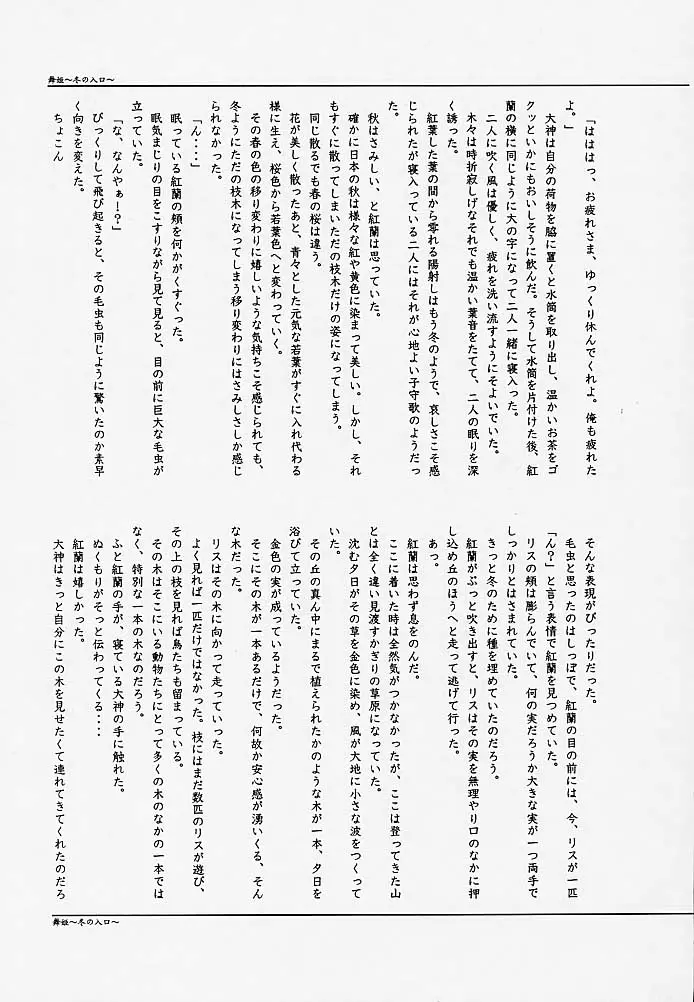 舞姫～冬の入口～
「はははっ、お疲れさま、ゆっくり休んでくれよ。俺も疲れた
よ。」
大神は自分の荷物を脇に置くと水筒を取り出し、温かいお茶をゴ
クッといかにもおいしそうに飲んだ。そうして水筒を片付けた後、紅
蘭の横に同じように大の字になって二人一緒に寝入った。
二人に吹く風は優しく、疲れを洗い流すようにそよいでいた。
木々は時折寂しげなそれでも温かい葉音をたてて、二人の眠りを深
く誘った。
紅葉した葉の間から零れる陽射しはもう冬のようで、哀しさこそ感
じられたが寝入っている二人にはそれが心地よい子守歌のようだっ
た。
秋はさみしい、と紅蘭は思っていた。
確かに日本の秋は様々な紅や黄色に染まって美しい。しかし、それ
もすぐに散ってしまいただの枝木だけの姿になってしまう。
同じ散るでも春の桜は違う。
花が美しく散ったあと、青々とした元気な若葉がすぐに入れ代わる
様に生え、桜色から若葉色へと変わっていく。
その春の色の移り変わりに嬉しいような気持ちこそ感じられても、
冬ようにただの枝木になってしまう移り変わりにはさみしさしか感じ
られなかった。
「ん・・・」
眠っている紅蘭の頬を何かがくすぐった。
眠気まじりの目をこすりながら見て見ると、目の前に巨大な毛虫が
立っていた。
「な、なんやぁー！？」
びっくりして飛び起きると、その毛虫も同じように驚いたのか素早
く向きを変えた。
ちょこん
そんな表現がぴったりだった。
毛虫と思ったのはしっぽで、紅蘭の目の前には、今、リスが一匹
「ん？」と言う表情で紅蘭を見つめていた。
リスの頬は膨らんでいて、何の実だろうか大きな実が一つ両手で
しっかりとはさまれていた。
きっと冬のために種を埋めていたのだろう。
紅蘭がぷっと吹き出すと、リスはその実を無理やり口のなかに押
し込め丘のほうへと走って逃げて行った。
あっ。
紅蘭は思わず息をのんだ。
ここに着いた時は全然気がつかなかったが、ここは登ってきた山
とは全く違い見渡すかぎりの草原になっていた。
沈む夕日がその草を金色に染め、風が大地に小さな波をつくって
いた。
その丘の真ん中にまるで植えられたかのような木が一本、夕日を
浴びて立っていた。
金色の実が成っているようだった。
そこにその木が一本あるだけで、何故か安心感が湧いくる、そん
な木だった。
リスはその木に向かって走っていった。
よく見れば一匹だけではなかった。枝にはまだ数匹のリスが遊び、
その上の枝を見れば鳥たちも留まっている。
その木はそこにいる動物たちにとって多くの木のなかの一本では
なく、特別な一本の木なのだろう。
ふと紅蘭の手が、寝ている大神の手に触れた。
ぬくもりがそっと伝わってくる・・・
紅蘭は嬉しかった。
大神はきっと自分にこの木を見せたくて連れてきてくれたのだろ
舞姫～冬の入口～